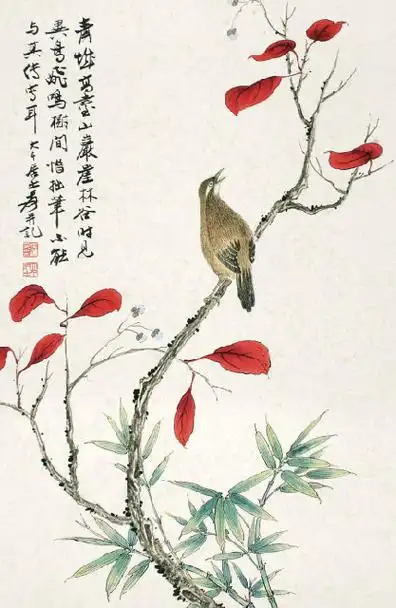 青城高臺山巖崖林谷時見
異鳥飛鳴樹間惜拙筆不能
與其傳寫耳 大千居士爰并記